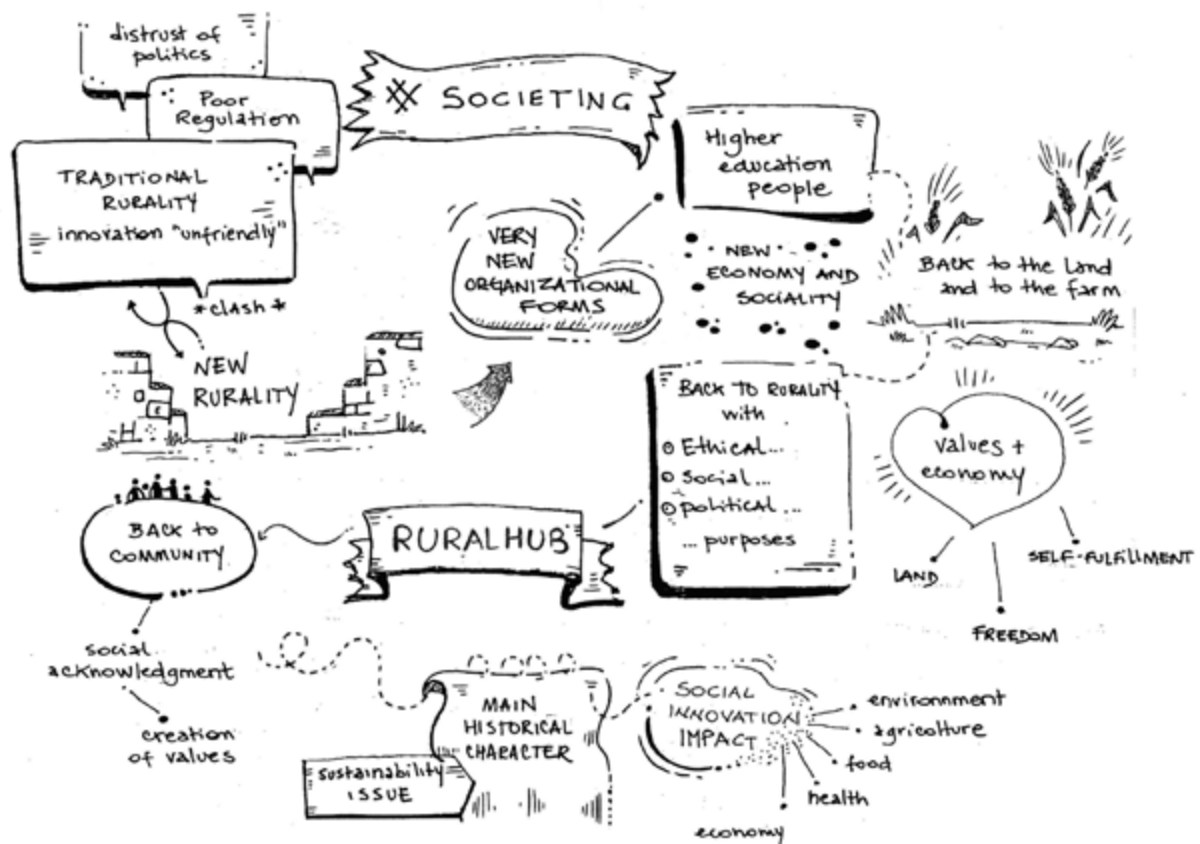 distrust of
politics
Poor
Regulation
TRADITIONAL
RURALITY
innovation "unfriendly"
*clash*
NEW
RURALITY
SOCIETING
VERY
NEW
ORGANIZATIONAL
FORMS
Higher
education
people
NEW
ECONOMY AND
SOCIALITY
BACK to the land
and to the farm
BACK TO RURALITY
with
Ethical...
social...
political...
... purposes
values +
economy
LAND
FREEDOM
SELF-FULFILLMENT
RURALHUB
BACK to
COMMUNITY
social
acknowledgment
creation
of values
MAIN
HISTORICAL
CHARACTER
sustainability
ISSUE
SOCIAL
INNOVATION
IMPACT
environnment
agricolture
food
health
economy